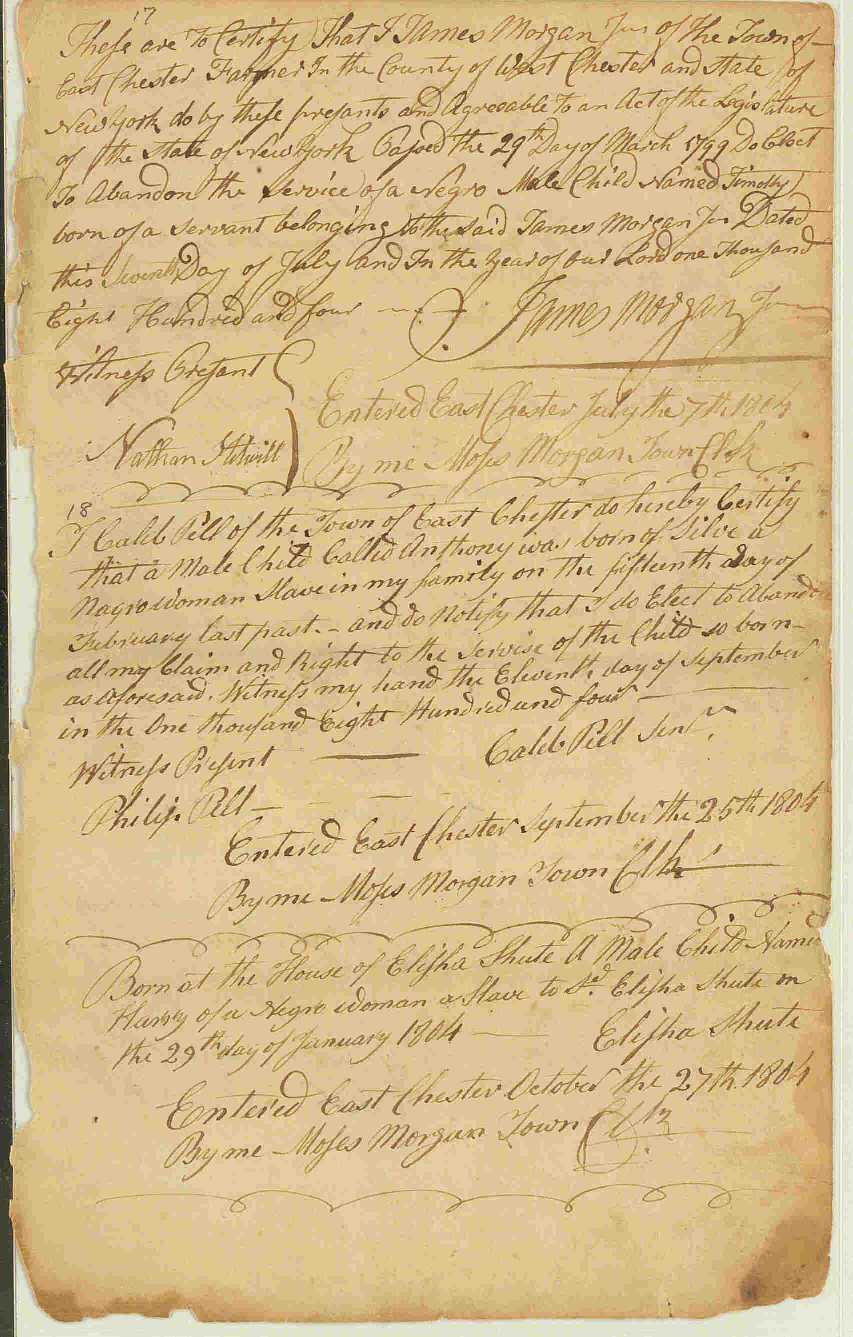 17
These are To Certify That I James Morgan Jun of the Town of
East Chester Farmer In the County of West Chester and State of
New York do by these presants and Agreeable To an Act of the Legislature
of the State of New York Passed the 29th Day of March 1799 Do Elect
To Abandon the Service of a Negro Male Child Named Timothy
born of a Servant belonging to the said James Morgan Jun Dated
this Seventh Day of July and In the year of our Lord one Thousand
Eight Hundred and four
James Morgan Jun
Witness Present
Entered East Chester July the 7th 1804
Nathan
By me Moses Morgan Town Clk
18
I Caleb Pell of the Town of East Chester do hereby Certify
that a Male Child Called Anthony was born of Silve a
Nagro woman Slave in my family on the fifteenth day of
February last past - and do Notify that I do Elect to Abandon
all my Claim and Right to the Servise of the Child so born
as aforesaid. Witness my hand the Eleventh day of September
in the One thousand Eight Hundred and four
Witness Present
Caleb Pell Senr
Philip Pell
Entered East Chester September the 25th 1804
By me Moses Morgan Town Clk
Born at the House of Elisha Shute A Male Child Named
Harry of a Negro woman a Slave to Sd. Elisha Shute on
the 29th day of January 1804
Elisha Shute
Entered East Chester October the 27th 1804
By me Moses Morgan Town Clk